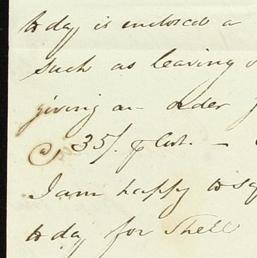 to day is enclosed a
such as leaving
giving an order
@ 35/. p Cwt. —
I am happy to
to day for Shell